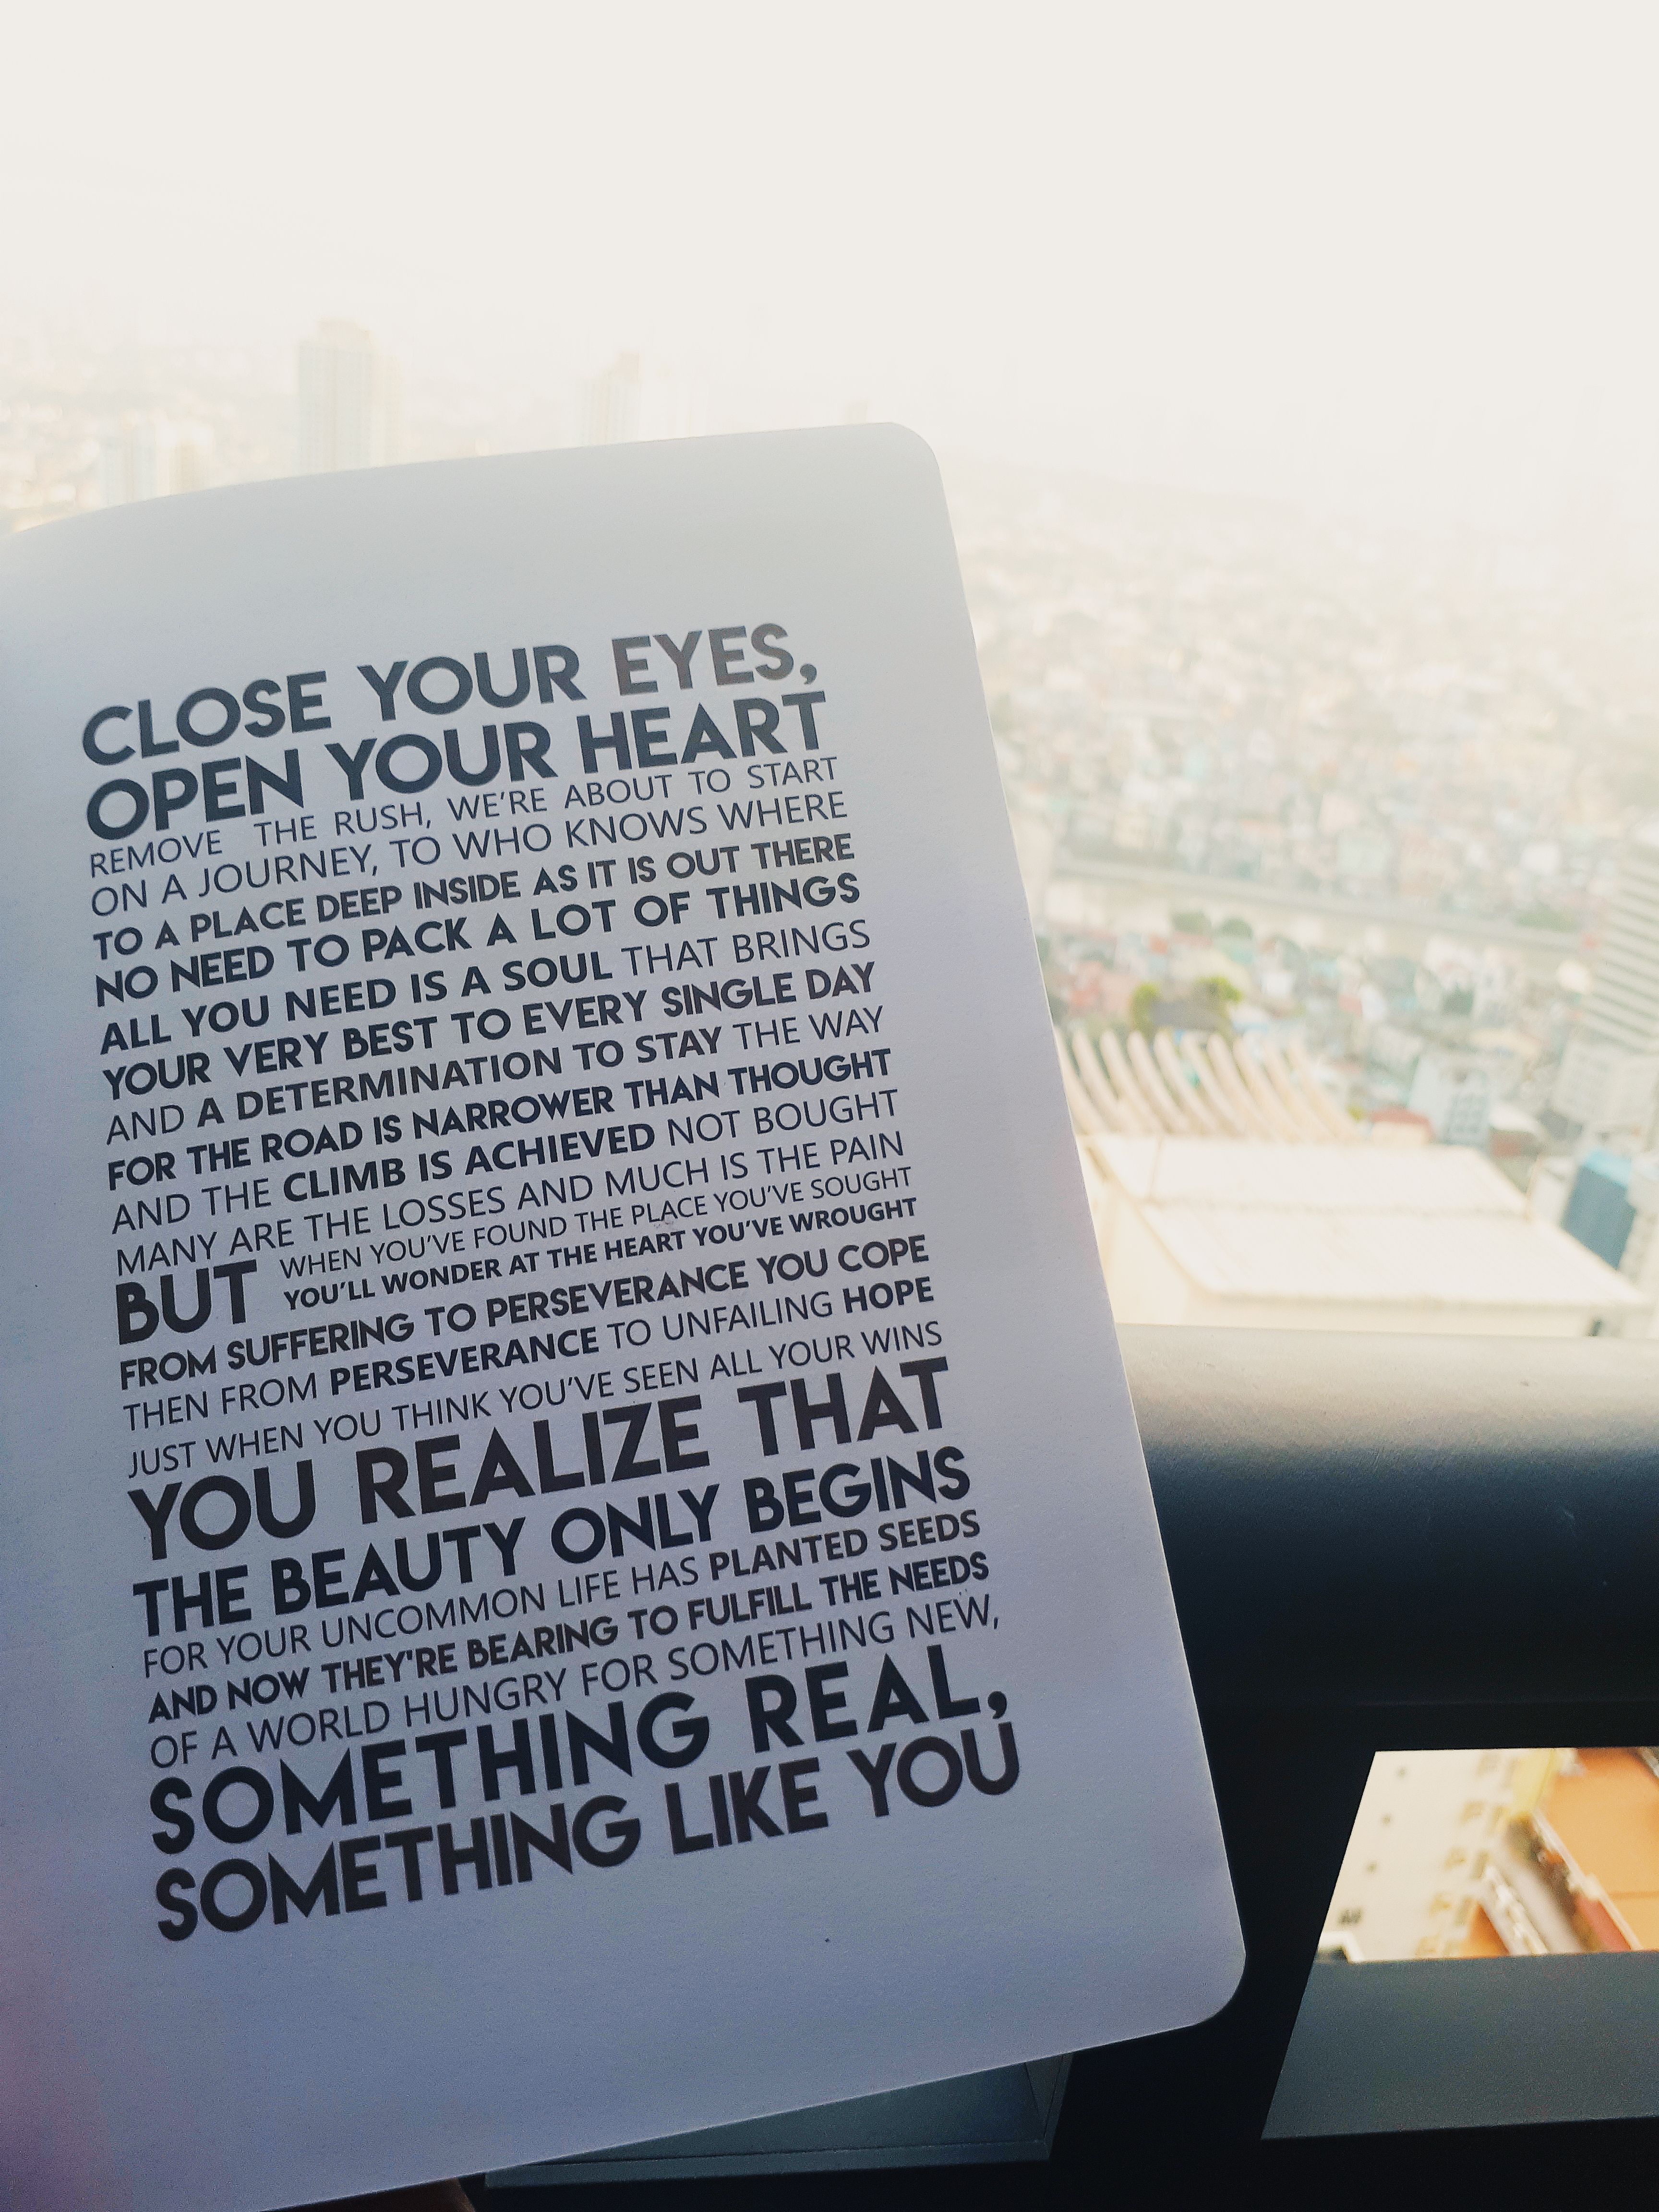 CLOSE YOUR EYES,
OPEN YOUR HEART
REMOVE THE RUSH, WE'RE ABOUT TO START
ON A JOURNEY, TO WHO KNOWS WHERE
TO A PLACE DEEP INSIDE AS IT IS OUT THERE
NO NEED TO PACK A LOT OF THINGS
ALL YOU NEED IS A SOUL THAT BRINGS
YOUR VERY BEST TO EVERY SINGLE DAY
AND A DETERMINATION TO STAY THE WAY
FOR THE ROAD IS NARROWER THAN THOUGHT
AND THE CLIMB IS ACHIEVED NOT BOUGHT
MANY ARE THE LOSSES AND MUCH IS THE PAIN
BUT WHEN YOU'VE FOUND THE PLACE YOU'VE SOUGHT
YOU'LL WONDER AT THE HEART YOU'VE WROUGHT
FROM SUFFERING TO PERSEVERANCE YOU COPE
THEN FROM PERSEVERANCE TO UNFAILING HOPE
JUST WHEN YOU THINK YOU'VE SEEN ALL YOUR WINS
YOU REALIZE THAT
THE BEAUTY ONLY BEGINS
FOR YOUR UNCOMMON LIFE HAS PLANTED SEEDS
AND NOW THEY'RE BEARING TO FULFILL THE NEEDS
OF A WORLD HUNGRY FOR SOMETHING NEW,
SOMETHING REAL,
SOMETHING LIKE YOU